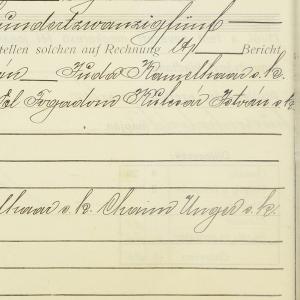 hundertzwanzigfünf
stellen solchen auf Rechnung Bericht
Juda Kamelhaar s.k.
Elfogadom Kulcsár István s.k.
lhaar s.k. Chaim Unger s.k.